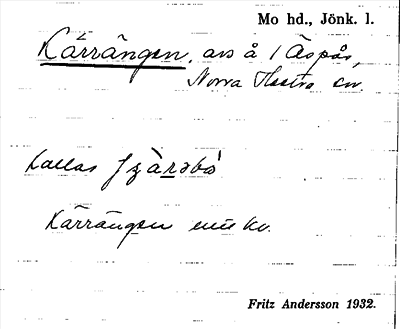 Mo hd., Jönk. l.
Kärrängen, avs å 1 Äspås,
Norra Hestra sn.
kallas
Kärrängen enl kv.
Fritz Andersson 1932.